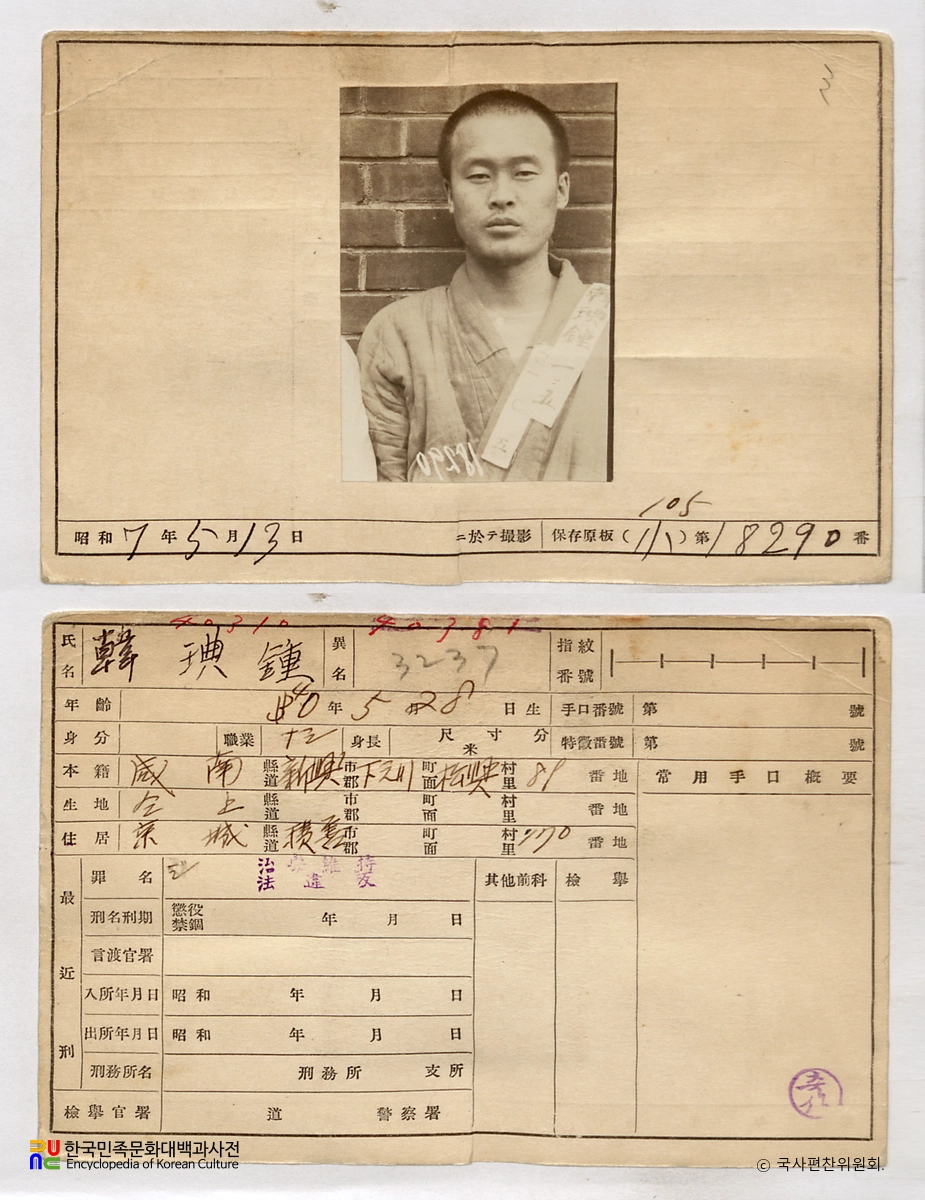 105
昭和7年5月13日 ニ於テ撮影 保存原板 第18290番
18290
40310 40381
氏名 韓 㙉 鍾 異名 3237 指紋番號
年齡 40年5月28日生 手口番號 第 號
身分 職業 身長 尺寸分 米 特徵番號 第 號
本籍 咸南 縣道 新興 市郡 下元川 町面 松興 村里 89 番地 常用手口槪要
生地 仝上 縣道 市郡 町面 村里 番地
住居 京城 縣道 積善 市郡 町面 村里 170 番地
最近刑
罪名 治安維持法違反 其他前科 檢擧
刑名刑期 懲役 禁錮 年 月 日
言渡官署
入所年月日 昭和 年 月 日
出所年月日 昭和 年 月 日
刑務所名 刑務所 支所
檢擧官署 道 警察署
한국민족문화대백과사전
Encyclopedia of Korean Culture
© 국사편찬위원회.